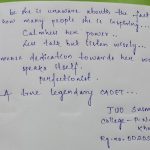 be she is unaware abouts the fact
how many people she is inspiring...
Calmness her power..
Less talk but listen wisely...
dedication towards her work
speaks itself.
perfectionist.
A true legendary CADET...
JUO
College -